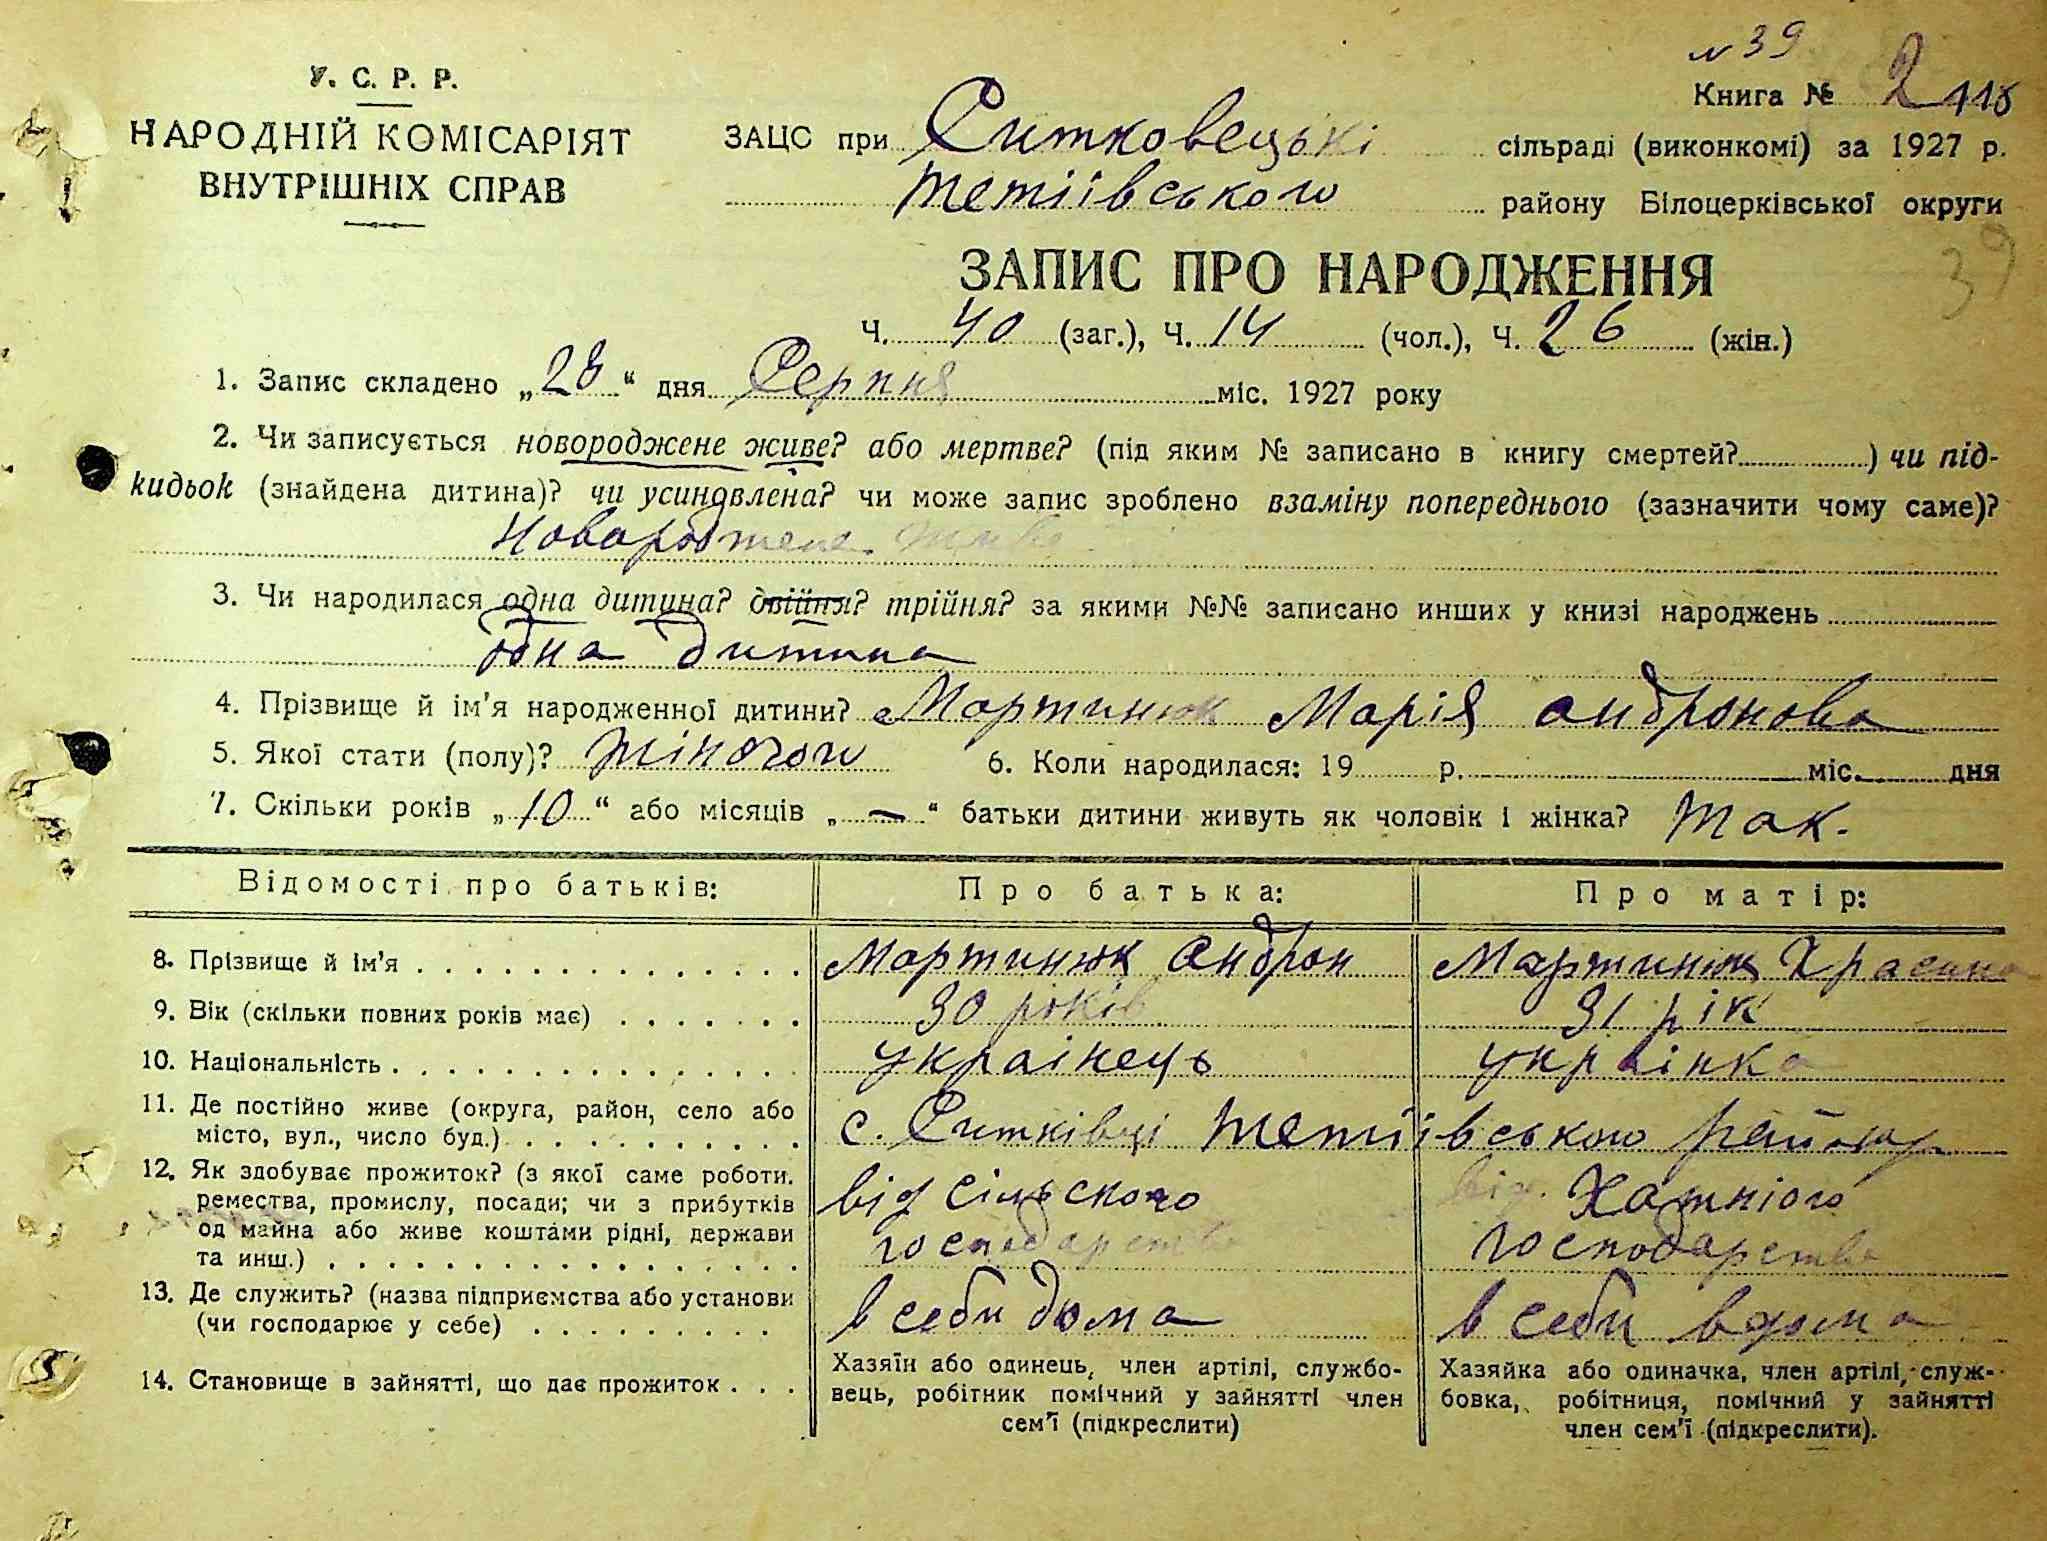 N 39
У. С. Р. Р.
Книга № 2 118
НАРОДНІЙ КОМІСАРІЯТ
ВНУТРІШНІХ СПРАВ
ЗАЦС при Ситковецькі сільраді (виконкомі) за 1927 р.
Тетіївського району Білоцерківської округи
39
ЗАПИС ПРО НАРОДЖЕННЯ
Ч. 40 (заг.), Ч. 14 (чол.), Ч. 26 (жін.)
1. Запис складено „28“ дня Серпня міс. 1927 року
2. Чи записується новороджене живе? або мертве? (під яким № записано в книгу смертей? ) чи під-
кидьок (знайдена дитина)? чи усиновлена? чи може запис зроблено взаміну попереднього (зазначити чому саме)?
Новароджене живе
3. Чи народилася одна дитина? двійня? трійня? за якими №№ записано инших у книзі народжень
одна дитина
4. Прізвище й ім'я народженної дитини? Мартинюк Марія Андронова
5. Якої стати (полу)? жіночого 6. Коли народилася: 19 р. міс. дня
7. Скільки років „10“ або місяців „—“ батьки дитини живуть як чоловік і жінка? Так.
Відомості про батьків: Про батька: Про матір:
8. Прізвище й ім'я Мартинюк Андрон Мартинюк Храсина
9. Вік (скільки повних років має) 30 років 31 рік
10. Національність українець українка
11. Де постійно живе (округа, район, село або
місто, вул., число буд.) с. Ситківці Тетіївського району
12. Як здобуває прожиток? (з якої саме роботи.
ремества, промислу, посади; чи з прибутків
од майна або живе коштами рідні, держави
та инш.)
від сільского
господарства
від Хатнього
господарства
13. Де служить? (назва підприємства або установи
(чи господарює у себе) в себи дома в себи вдома
14. Становище в зайнятті, що дає прожиток
Хазяїн або одинець, член артілі, службо-
вець, робітник помічний у зайнятті член
сем'ї (підкреслити)
Хазяйка або одиначка, член артілі, служ-
бовка, робітниця, помічний у зайнятті
член сем'ї (підкреслити).